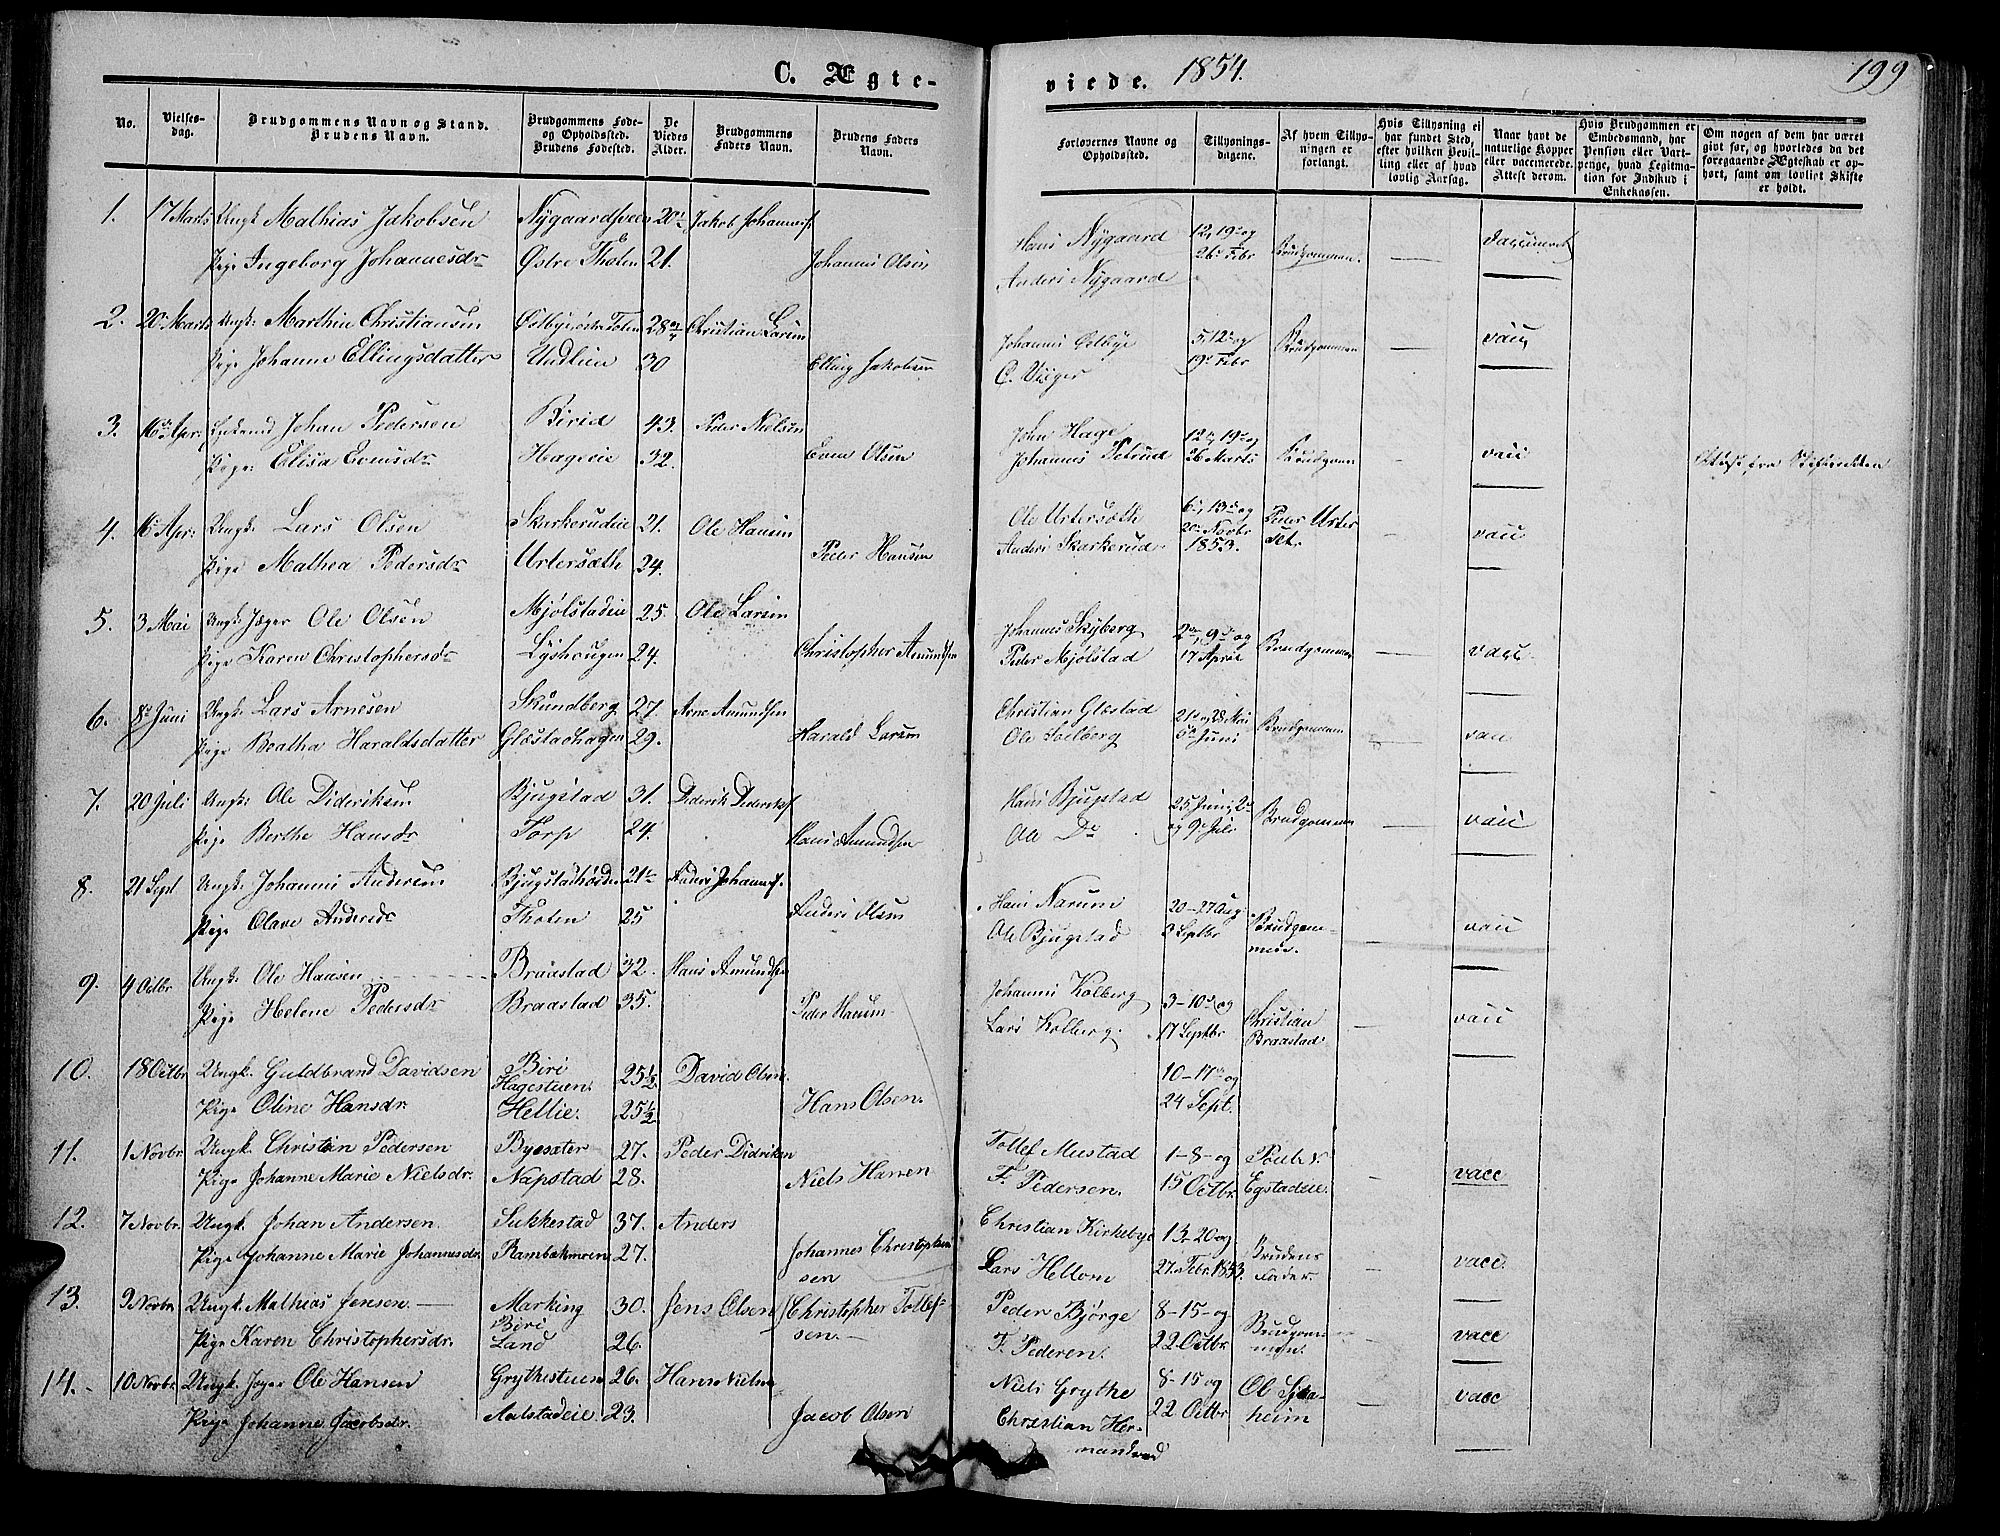 C. Ægteviede. 1854. 199
No.
Vielsesdag.
Brudgommens Navn og Stand.
Brudens Navn.
Brudgommens Føde-
og Opholdssted.
Brudens Fødested.
De
Viedes
Alder.
Brudgommens
Faders Navn.
Brudens Faders
Navn.
Forlovernes Navne og
Opholdssted.
Tillysnings-
dagene.
Af hvem Tillys-
ningen er
forlangt.
Hvis Tillysning ei
har fundet Sted,
efter hvilken Bevil-
ling eller af hvad
lovlig Aarsag.
Naar havt de
naturlige Kopper
eller vaccinerede.
Attest derom.
Hvis Brudgommen er
Embedsmand, har
Pension eller Vart-
penge, hvad Legitima-
tion for Indskud i
Enkekassen.
Om nogen af dem har været
givt før, og hvorledes da det
foregaaende Ægteskab er op-
hørt, samt om lovligt Skifte
er holdt.
1. 17 Marts Ungk. Mathias Jakobsen 20 Jakob Johannes Hans Nygaard 12, 19 og
Pige Ingeborg Johannesdr Østre Thoten 21. Johannes Olsen Anders Nygaard 26 Febr Brudgommen.
2. 20 Marts Ungk: Marthin Christiansen Østbye østre Toten 28 Christian Larsen Johannes 5, 12 og Brudgommen vacc
Pige Johanne Ellingsdatter Undlien 30 Elling Jakobsen C. 19 Febr
3. 16 Apr: Johan Pedersen Birid 43. Peder Nielsen John Hage 12, 19 og Brudgomm vacc
Pige: Elisa Evensdr Hageeie 32. Even Olsen Johannes 26 Marts Attest fra Skifteretten
4. 16 Apr: Ungk: Lars Olsen Skarkerudeie 21. Ole Hansen Ole Urtersæth 6, 13 og Peder Urter vacc
Pige Mathea Pedersdr Urtersæth 24. Peder Hansen Anders Skarkerud 20 Novbr 1853. set.
5. 3 Mai Ungk. Jæger Ole Olsen Mjølstadeie 25. Ole Larsen Johannes Skyberg 2, 9 og Brudgommen vacc.
Pige Karen Christophersdr Lyshougen 24. Christopher Amundsen Peder Mjølstad 17 April
6. 8 Juni Ungk. Lars Arnesen Skundberg 27. Arne Amundsen Christian Glæstad 21 og 28 Mai Brudgommen vacc
Pige Beatha Haraldsdatter Glæstadhagen 29. Harald Larsen Ole Juni
7. 20 Juli Ungk: Ole Dideriksen Bjugstad 31. Diderik Dideriks Hans Bjugstad 25 Juni, 2 Brudgommen vacc
Pige Berthe Hansdr Torp 24. Hans Amundsen Ole Do og 9 Juli
8. 21 Sept Ungk. Johannes Andersen 21½ Anders Johannes. Hans Narum 20-27 Aug Brudgom- vacc
Pige Olave Andersdr Thoten 25 Anders Olsen Ole Bjugstad 3 Septbr men.
9. 4 Octbr. Ungk. Ole Hansen Braastad 32. Hans Amundsen Johannes Kolberg 3-10 og Christian vacc
Pige Helene Pedersdr Braastad 35. Peder Hansen Lars Kolberg. 17 Septbr Braastad.
10. 18 Octbr. Ungk. Guldbrand Davidsen Biri Hagestuen. 25½. David Olsen. 10-17 og
Pige Oline Hansdr. Hellie. 25½. Hans Olsen. 24 Sept.
11. 1 Novbr. Ungk. Christian Pedersen Byesæter 27. Peder Didriksen Tollef Mustad 1-8-og Poul
Pige Johanne Marie Nielsdr. Napstad 28. Niels Hansen F. Pedersen. 15 Octbr. Egstadeie. vacc
12. 7 Novbr. Ungk. Johan Andersen. Sukkestad 37. Anders Christian Kirkebye 13-20 og Brudens
Pige Johanne Marie Johannesdr. Rambakmoen 27. Johannes Christophersen Lars Hellom 27. Febr. 1853. Fader. vacc
13. 9 Novbr Ungk. Mathias Jensen. Marking Biri 30. Jens Olsen Christopher Tollef- Peder Bjørge 8-15-og Brudgom-
Pige Karen Christophersdr. Land 26. sen. F. Pedersen. 22 Octbr. men. vacc
14. 10 Novbr. Ungk. Jæger Ole Hansen Grythestuen 26. Hans Nielsen Niels Grythe 8-15 og Ol vacc
Pige Johanne Jacobsdr. Aalstadeie 23. Jacob Olsen Christian Her- 22 Octbr heim
mandrud